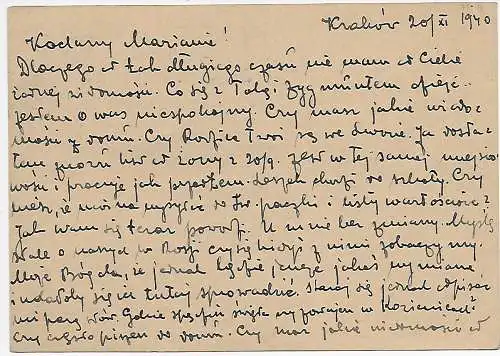 Kraków 20/XI 1940
Kochany Marianie!
Dlaczego od tak długiego czasu nie mam od Ciebie
żadnej wiadomości. Co się z Tobą i Zygmuntem dzieje.
Jestem o was niespokojny. Czy masz jakie wiado-
mości z domu. Czy Rodzice Twoi są we Lwowie. Ja dosta-
łem znowu list od żony z 20/9. Jest w tej samej miejsco-
wości i pracuje jak przedtem. Leszek chodzi do szkoły. Czy
wiesz, że można wysyłać do paczki i listy wartościowe?
Jak wam się teraz powodzi. U mnie bez zmiany. Myślę
stale o naszych w Rosji czy się kiedyś z nimi zobaczymy.
Może Bóg da, że jednak będzie jeszcze jakaś wymiana
i udałoby się ich tutaj sprowadzić. Staraj się jednak odpisać
mi parę słów. Gdzie spędzi święta czy w Kozienicach?
Czy często piszesz do domu. Czy masz jakie wiadomości od